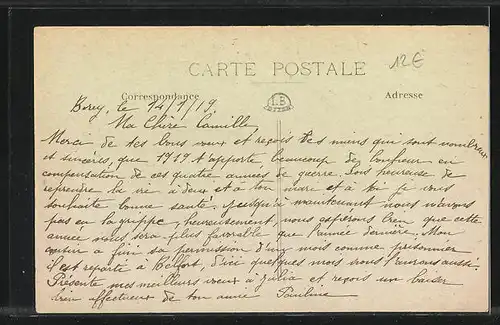 CARTE POSTALE
12€
Correspondance
Adresse
I.B
Borey, le 14/1/19
Ma Chère Camille
Merci de tes bons vœux et reçois les miens qui sont nombreux
et sincères, que 1919 t'apporte beaucoup de bonheur en
compensation de ces quatre années de guerre. Sois heureuse de
reprendre la vie à deux et à ton mari et à toi je vous
souhaite bonne santé. Jusqu'à maintenant nous n'avons
pas eu la grippe, heureusement, nous espérons bien que cette
année nous sera plus favorable que l'année dernière. Mon
a fini sa permission d'un mois comme prisonnier
il est reparti à Belfort, d'ici quelques mois nous l'aurons aussi.
Présente mes meilleurs vœux à Julia et reçois un baiser
bien affectueux de ton amie Pauline